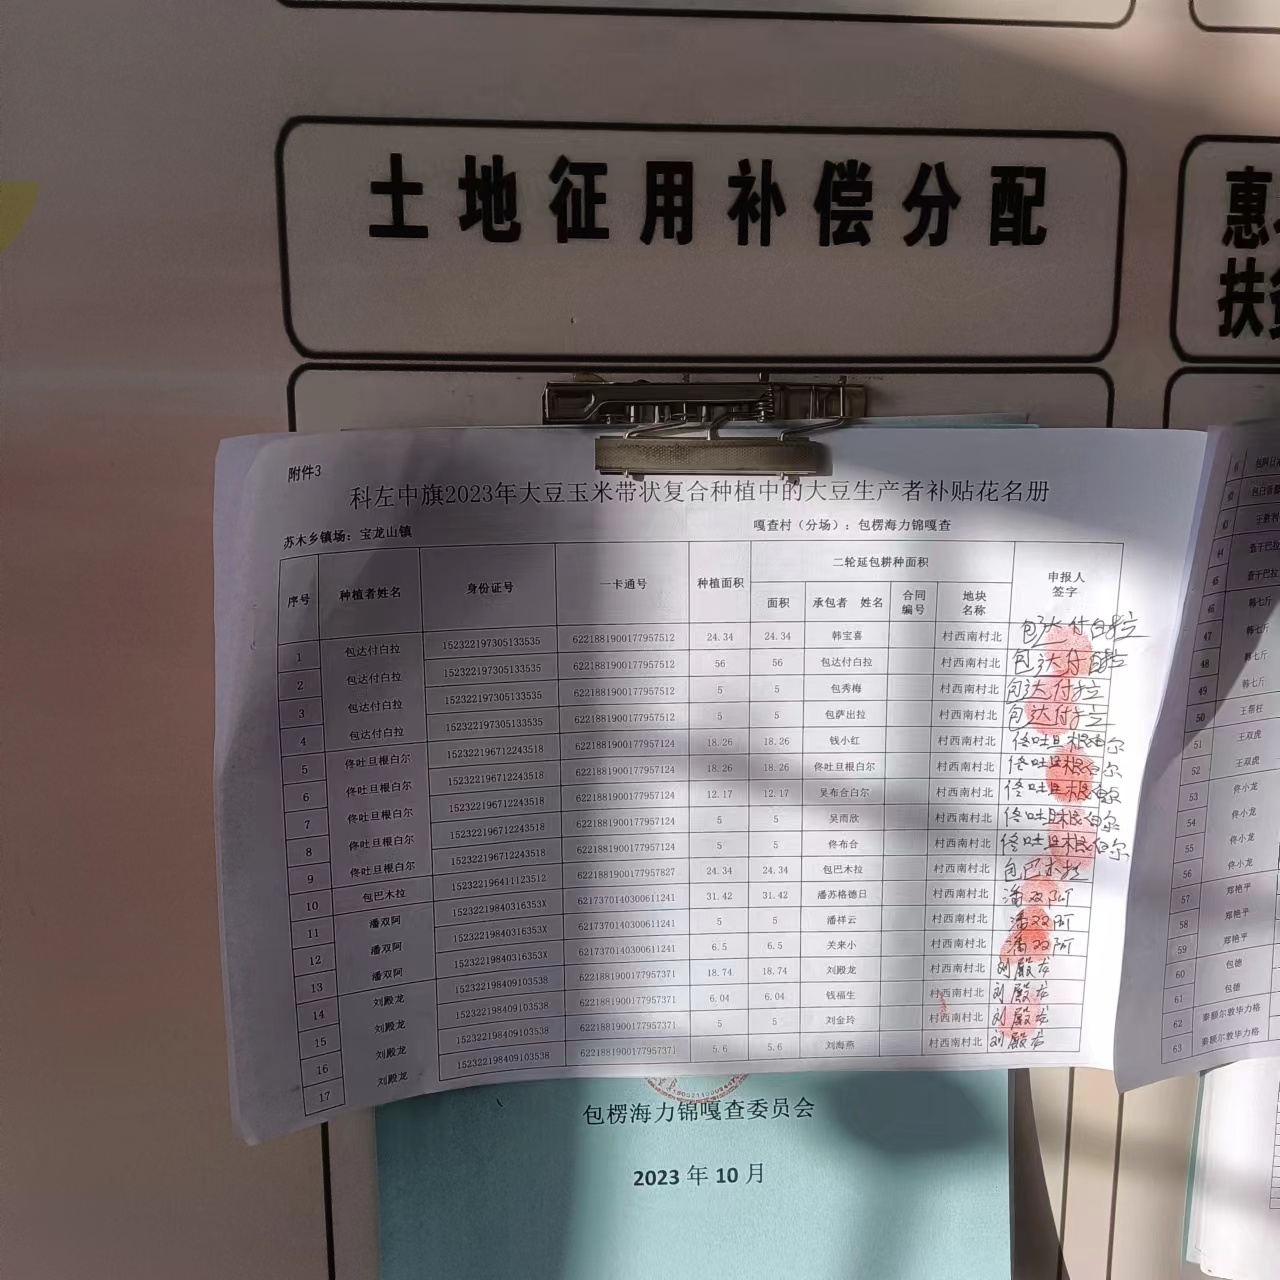 土地征用补偿分配
惠
扶
附件3
科左中旗2023年大豆玉米带状复合种植中的大豆生产者补贴花名册
苏木乡镇场：宝龙山镇 嘎查村（分场）：包楞海力锦嘎查
序号 种植者姓名 身份证号 一卡通号 种植面积 二轮延包耕种面积 申报人签字
面积 承包者 姓名 合同编号 地块名称
1 包达付白拉 152322197305133535 6221881900177957512 24.34 24.34 韩宝喜 村西南村北 包达付白拉
2 包达付白拉 152322197305133535 6221881900177957512 56 56 包达付白拉 村西南村北 包达付白拉
3 包达付白拉 152322197305133535 6221881900177957512 5 5 包秀梅 村西南村北 包达付拉
4 包达付白拉 152322197305133535 6221881900177957512 5 5 包萨出拉 村西南村北 包达付拉
5 佟吐旦根白尔 152322196712243518 6221881900177957124 18.26 18.26 钱小红 村西南村北 佟吐旦根白尔
6 佟吐旦根白尔 152322196712243518 6221881900177957124 18.26 18.26 佟吐旦根白尔 村西南村北 佟吐旦根白尔
7 佟吐旦根白尔 152322196712243518 6221881900177957124 12.17 12.17 吴布合白尔 村西南村北 佟吐旦根白尔
8 佟吐旦根白尔 152322196712243518 6221881900177957124 5 5 吴雨欣 村西南村北 佟吐旦根白尔
9 佟吐旦根白尔 152322196712243518 6221881900177957124 5 5 佟布合 村西南村北 佟吐旦根白尔
10 包巴木拉 152322196411123512 6221881900177957827 24.34 24.34 包巴木拉 村西南村北 包巴木拉
11 潘双阿 15232219840316353X 6217370140300611241 31.42 31.42 潘苏格德日 村西南村北 潘双阿
12 潘双阿 15232219840316353X 6217370140300611241 5 5 潘祥云 村西南村北 潘双阿
13 潘双阿 15232219840316353X 6217370140300611241 6.5 6.5 关来小 村西南村北 潘双阿
14 刘殿龙 152322198409103538 6221881900177957371 18.74 18.74 刘殿龙 村西南村北 刘殿龙
15 刘殿龙 152322198409103538 6221881900177957371 6.04 6.04 钱福生 村西南村北 刘殿龙
16 刘殿龙 152322198409103538 6221881900177957371 5 5 刘金玲 村西南村北 刘殿龙
17 刘殿龙 152322198409103538 6221881900177957371 5.6 5.6 刘海燕 村西南村北 刘殿龙
44 查干巴拉
45 查干巴拉
46 韩七斤
47 韩七斤
48 韩七斤
49 韩七斤
50 王帮柱
51 王双虎
52 王双虎
53 佟小龙
54 佟小龙
55 佟小龙
56 佟小龙
57 郑艳平
58 郑艳平
59 郑艳平
60 包德
61 包德
62 秦额尔敦毕力格
63 秦额尔敦毕力格
包楞海力锦嘎查委员会
2023 年 10 月